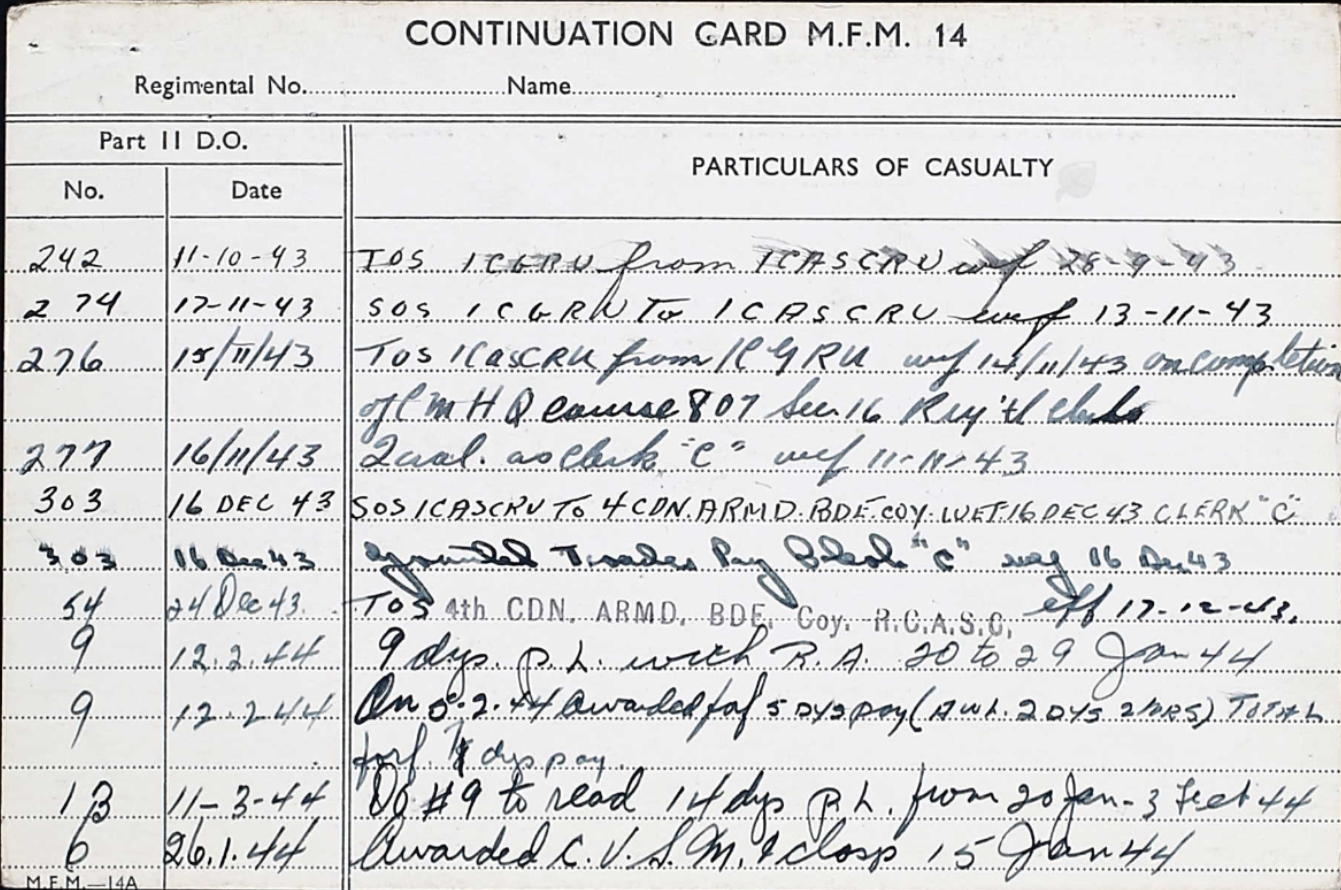 CONTINUATION CARD M.F.M. 14
Regimental No. Name
Part II D.O.
PARTICULARS OF CASUALTY
No. Date
242 11-10-43 TOS 1CGRU from 1CASCRU wef 28-9-43
274 17-11-43 SOS 1CGRU To 1CASCRU wef 13-11-43
276 15/11/43 TOS 1CASCRU from 1CGRU wef 14/11/43 on completion
of CMHQ course 807 Ser. 16 Reg'tl Clerks
277 16/11/43 Qual. as Clerk "C" wef 11-11-43
303 16 DEC 43 SOS 1CASCRU TO 4 CDN. ARMD. BDE. COY. WEF. 16 DEC 43 CLERK "C"
303 16 Dec 43 granted Trades Pay "C" wef 16 Dec 43
54 24 Dec 43. TOS 4th CDN. ARMD. BDE. Coy. R.C.A.S.C. eff 17-12-43.
9 12.2.44 9 dys. P.L. with R.A. 20 to 29 Jan 44
9 12.2.44 On 5.2.44 awarded forf 5 DYS pay (AWL. 2 DYS 2 HRS) TOTAL
forf. dys pay.
13 11-3-44 DO #9 to read 14 dys P.L. from 20 Jan - 3 Feb 44
6 26.1.44 Awarded C.V.S.M. & clasp 15 Jan 44
M.F.M.—14A